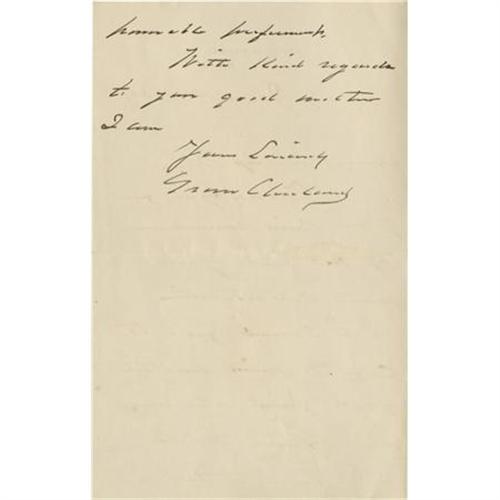 honorable preferment.
With kind regards
to your good mother
I am
Yours Sincerely
Grover Cleveland